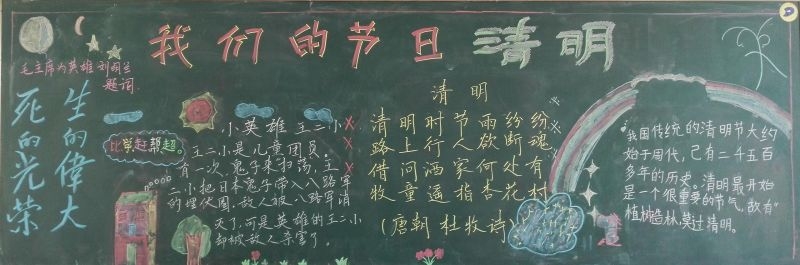 我们的节日清明
毛主席为英雄刘胡兰
题词
生的偉大
死的光荣
比学赶帮超。
小英雄王二小
王二小是儿童团员,
有一次,鬼子来扫荡,王
二小把日本鬼子带入八路军
的埋伏圈,敌人被八路军消
灭了,可是英雄的王二小
却被敌人杀害了。
清明
清明时节雨纷纷
路上行人欲断魂
借问洒家何处有
牧童遥指杏花村
(唐朝杜牧诗)
我国传统的清明节大约
始于周代,已有二千五百
多年的历史。清明最开始
是一个很重要的节气,故有"
植树造林,莫过清明。